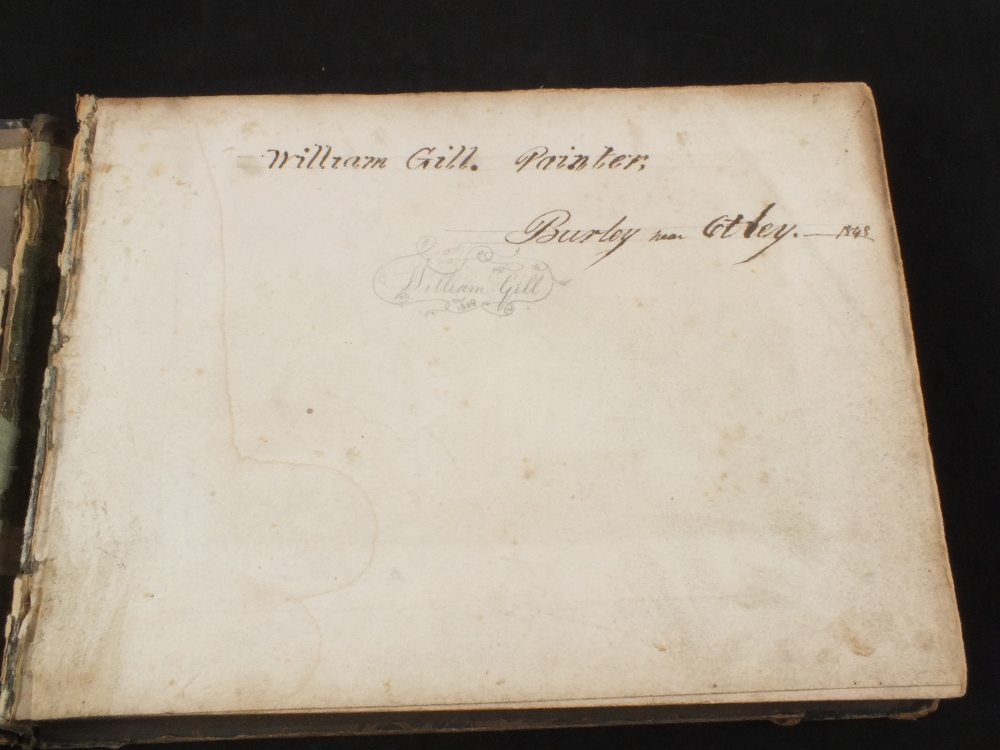 William Gill. Painter,
Burley near Otley. — 1848
William Gill
1848